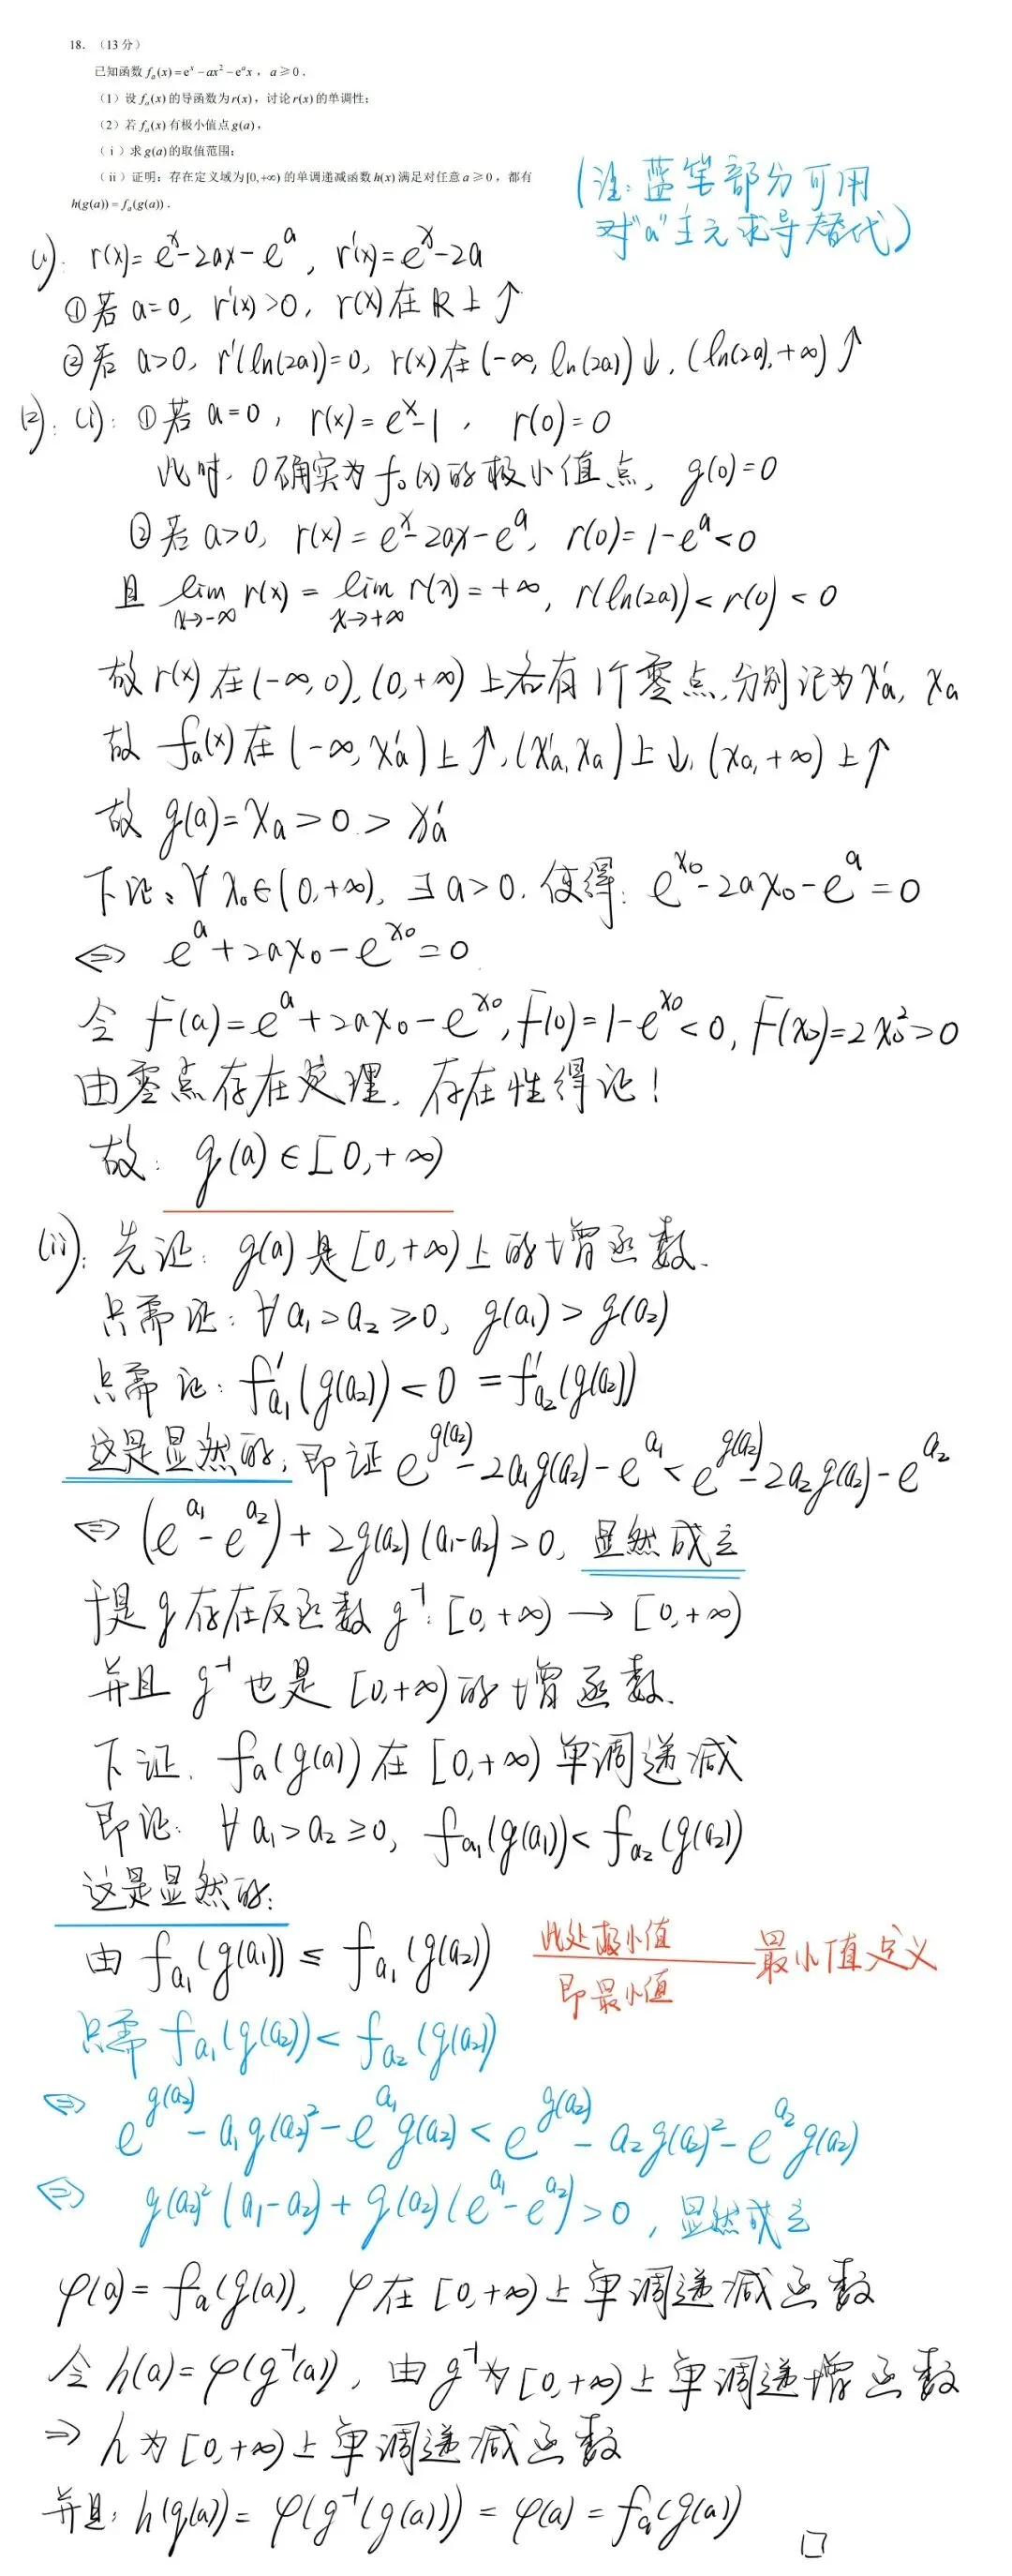 18. （13分）
已知函数 fₐ(x)=eˣ−ax²−eᵃx，a≥0．
（1）设 fₐ(x) 的导函数为 r(x)，讨论 r(x) 的单调性；
（2）若 fₐ(x) 有极小值点 g(a)，
（ⅰ）求 g(a) 的取值范围；
（ⅱ）证明：存在定义域为[0,+∞) 的单调递减函数 h(x) 满足对任意 a≥0，都有
h(g(a))=fₐ(g(a))．
(注：蓝笔部分可用
对"a"主元求导替代)
(1): r(x)=eˣ−2ax−eᵃ, r'(x)=eˣ−2a
①若 a=0, r'(x)>0, r(x)在R上↑
②若 a>0, r'(ln(2a))=0, r(x)在(−∞, ln(2a))↓, (ln(2a),+∞)↑
(2): (i): ①若 a=0, r(x)=eˣ−1, r(0)=0
此时, 0确实为 f₀(x)的极小值点, g(0)=0
②若 a>0, r(x)=eˣ−2ax−eᵃ, r(0)=1−eᵃ<0
且 lim_{x→−∞} r(x) = lim_{x→+∞} r(x) = +∞, r(ln(2a))<r(0)<0
故 r(x)在(−∞,0),(0,+∞)上各有1个零点,分别记为 xₐ', xₐ
故 fₐ(x)在(−∞, xₐ')上↑, (xₐ', xₐ)上↓, (xₐ,+∞)上↑
故 g(a)=xₐ>0>xₐ'
下证: ∀x₀∈(0,+∞), ∃a>0. 使得: e^{x₀}−2ax₀−eᵃ=0
⇔ eᵃ+2ax₀−e^{x₀}=0
令 F(a)=eᵃ+2ax₀−e^{x₀}, F(0)=1−e^{x₀}<0, F(x₀)=2x₀²>0
由零点存在定理, 存在性得证!
故: g(a)∈[0,+∞)
(ii): 先证: g(a)是[0,+∞)上的增函数.
只需证: ∀a₁>a₂≥0, g(a₁)>g(a₂)
只需证: f'_{a₁}(g(a₂))<0=f'_{a₂}(g(a₂))
这是显然的; 即证 e^{g(a₂)}−2a₁g(a₂)−e^{a₁}<e^{g(a₂)}−2a₂g(a₂)−e^{a₂}
⇔ (e^{a₁}−e^{a₂})+2g(a₂)(a₁−a₂)>0, 显然成立
于是 g 存在反函数 g⁻¹: [0,+∞)→[0,+∞)
并且 g⁻¹ 也是 [0,+∞)的增函数.
下证. fₐ(g(a))在[0,+∞)单调递减
即证: ∀a₁>a₂≥0, f_{a₁}(g(a₁))<f_{a₂}(g(a₂))
这是显然的:
由 f_{a₁}(g(a₁))≤f_{a₁}(g(a₂)) 此处极小值即最小值 —— 最小值定义
只需 f_{a₁}(g(a₂))<f_{a₂}(g(a₂))
⇔ e^{g(a₂)}−a₁g(a₂)²−e^{a₁}g(a₂)<e^{g(a₂)}−a₂g(a₂)²−e^{a₂}g(a₂)
⇔ g(a₂)²(a₁−a₂)+g(a₂)(e^{a₁}−e^{a₂})>0, 显然成立
φ(a)=fₐ(g(a)), φ在[0,+∞)上单调递减函数
令 h(a)=φ(g⁻¹(a)), 由 g⁻¹为[0,+∞)上单调递增函数
⇒ h为[0,+∞)上单调递减函数
并且: h(g(a))=φ(g⁻¹(g(a)))=φ(a)=fₐ(g(a)) □